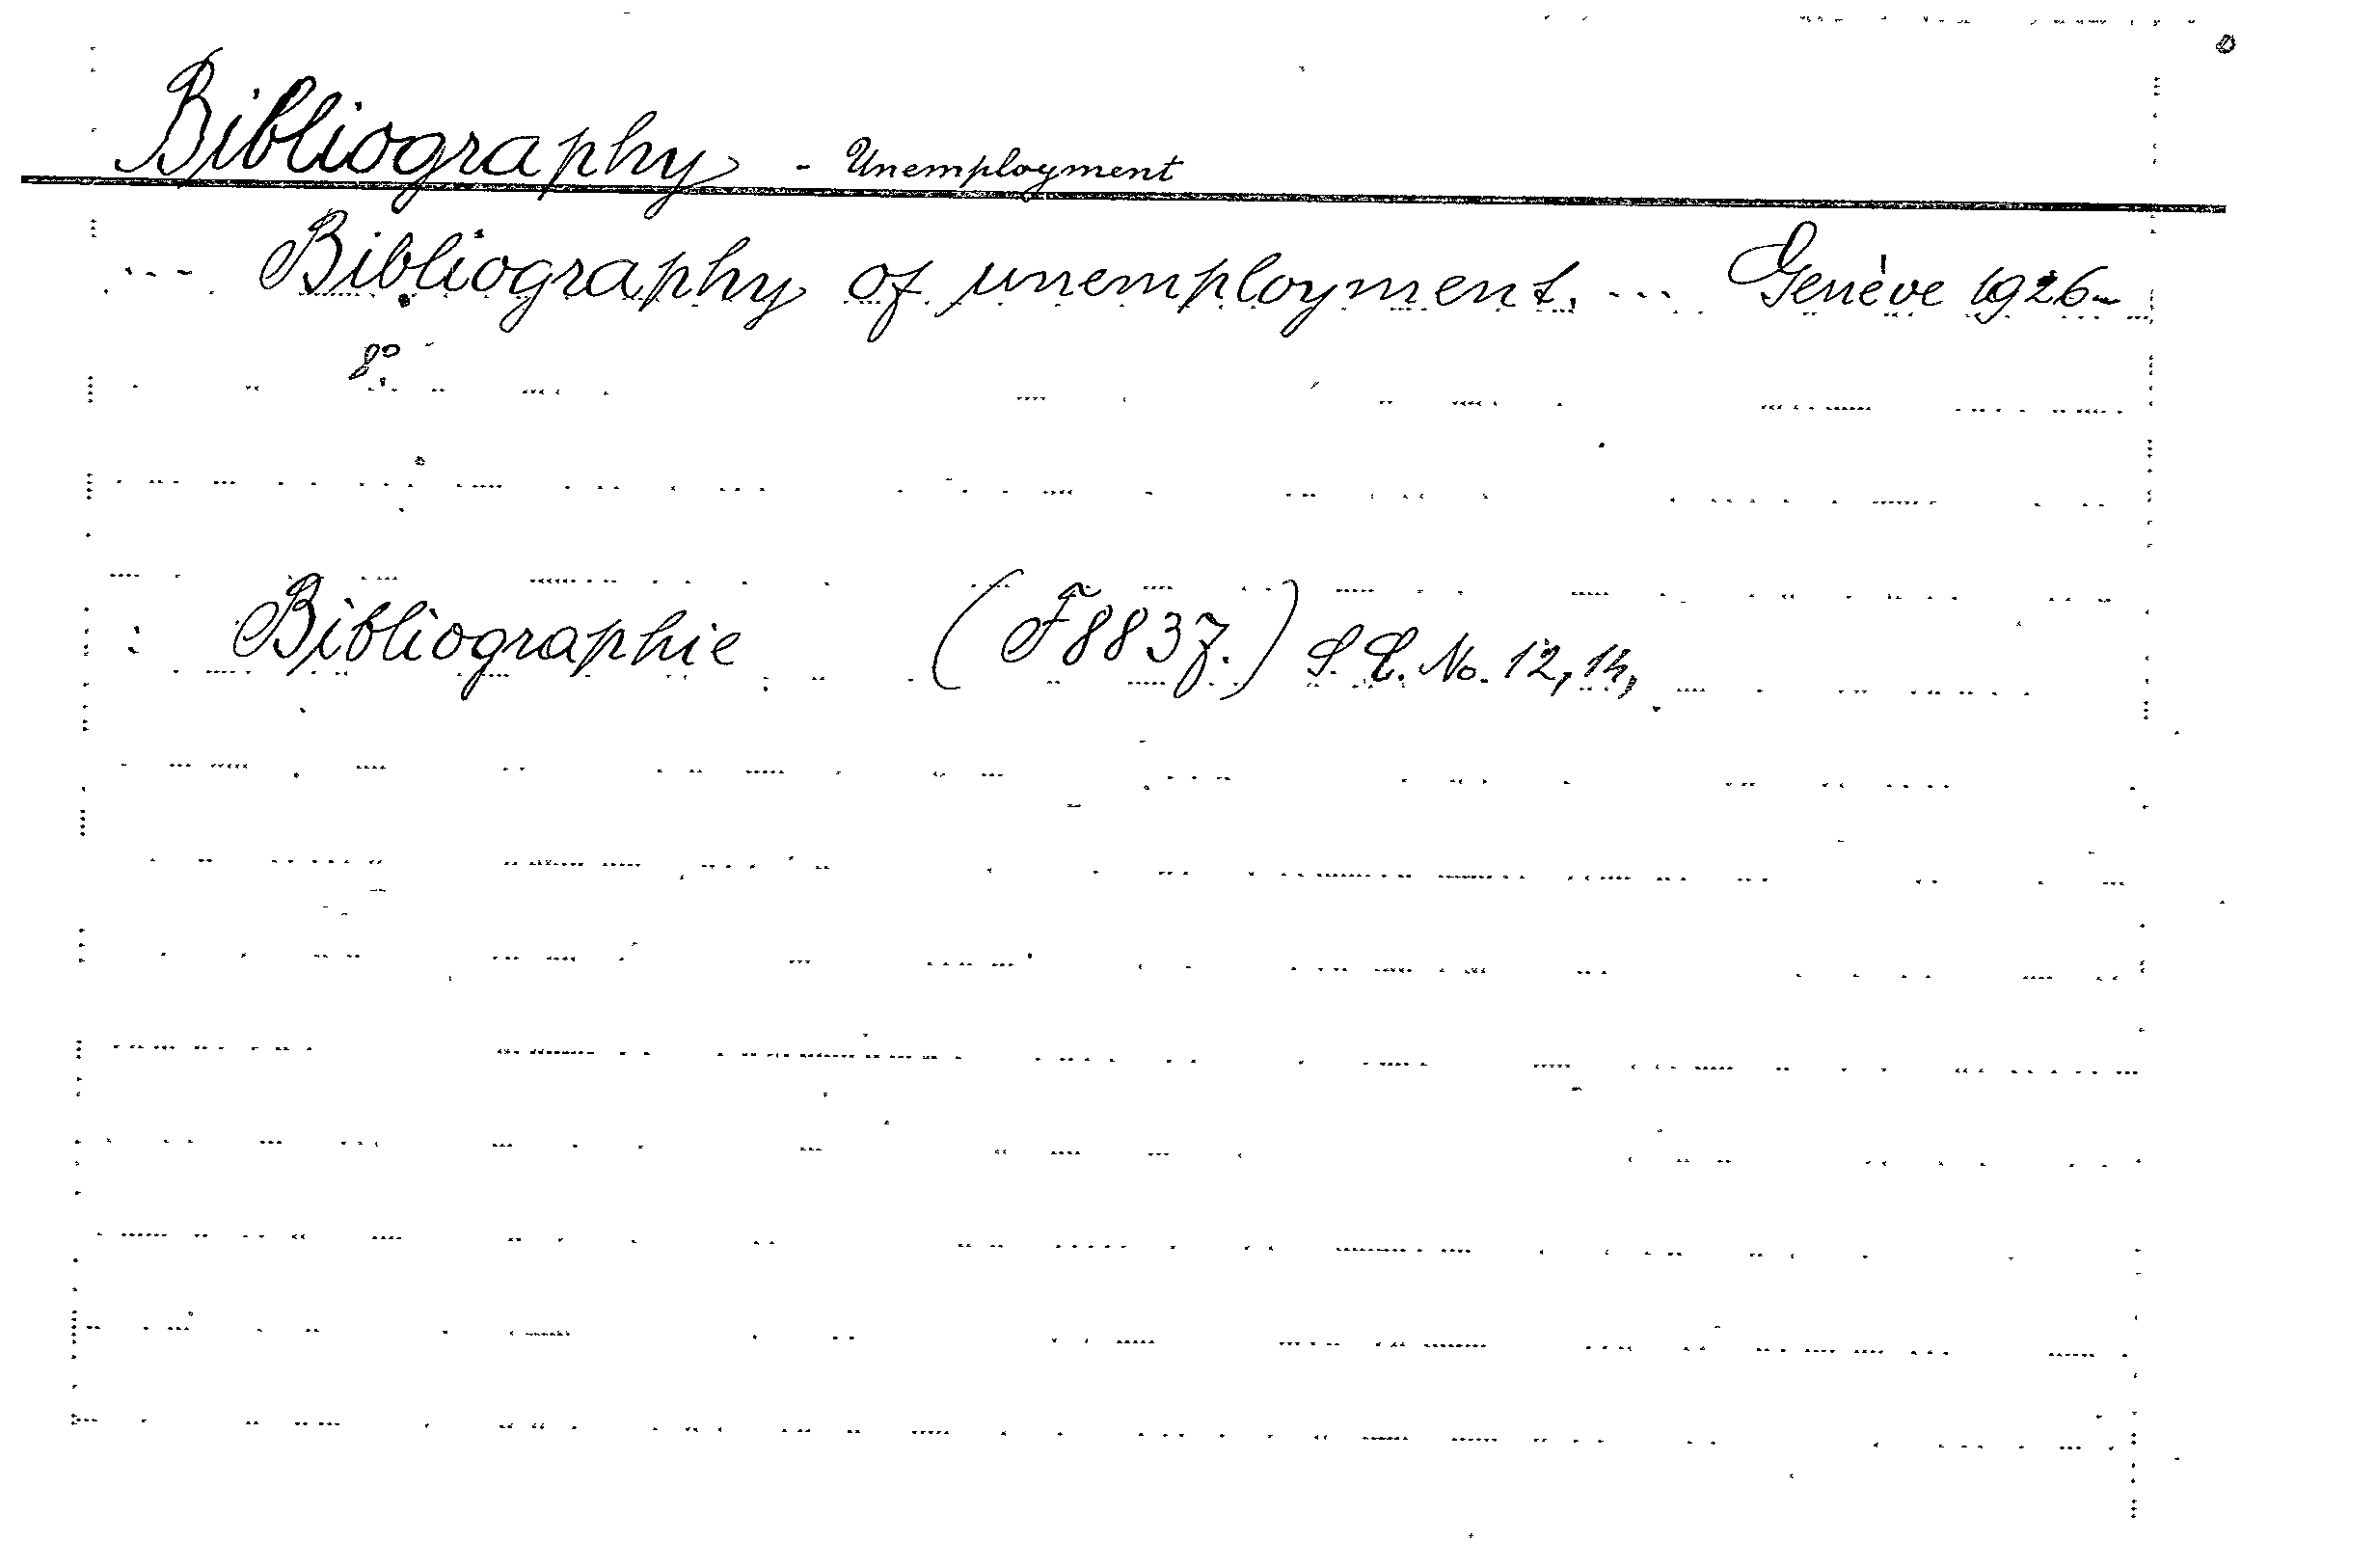 Bibliography - Unemployment
... Bibliography of unemployment. ... Genève 1926-
8°
: Bibliographie (F 8837.) S. L. No. 12, 14,